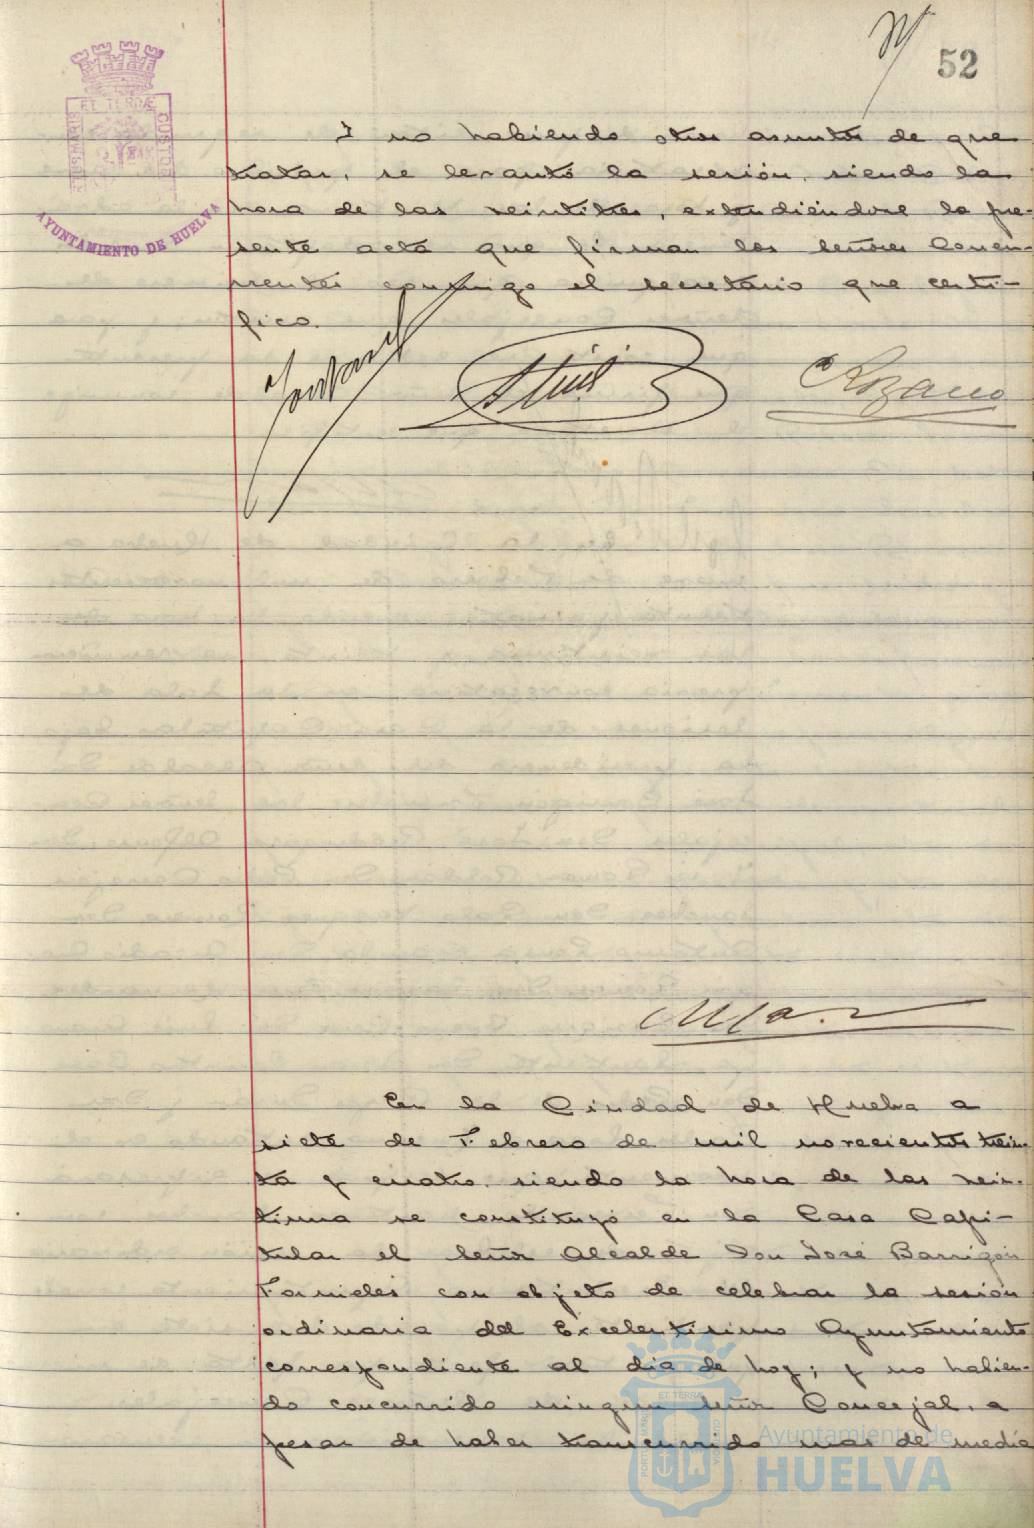 52
ET TERRÆ
CUSTODIA
AYUNTAMIENTO DE HUELVA
Y no habiendo otros asuntos de que
tratar, se levantó la sesión, siendo la
hora de las veintitres, extendiéndose la pre-
sente acta que firman los señores Concu-
rrentes conmigo el secretario que certi-
fico.
Lozano
En la Ciudad de Huelva a
siete de Febrero de mil novecientos trein-
ta y cuatro, siendo la hora de las vein-
tiuna se constituyó en la Casa Capi-
tular el Señor Alcalde Don José Barrigón
Fornieles con objeto de celebrar la sesión
ordinaria del Excelentísimo Ayuntamiento
correspondiente al día de hoy; y no habien-
do concurrido ningún Señor Concejal, a
pesar de haber transcurrido mas de media
Ayuntamiento de
HUELVA